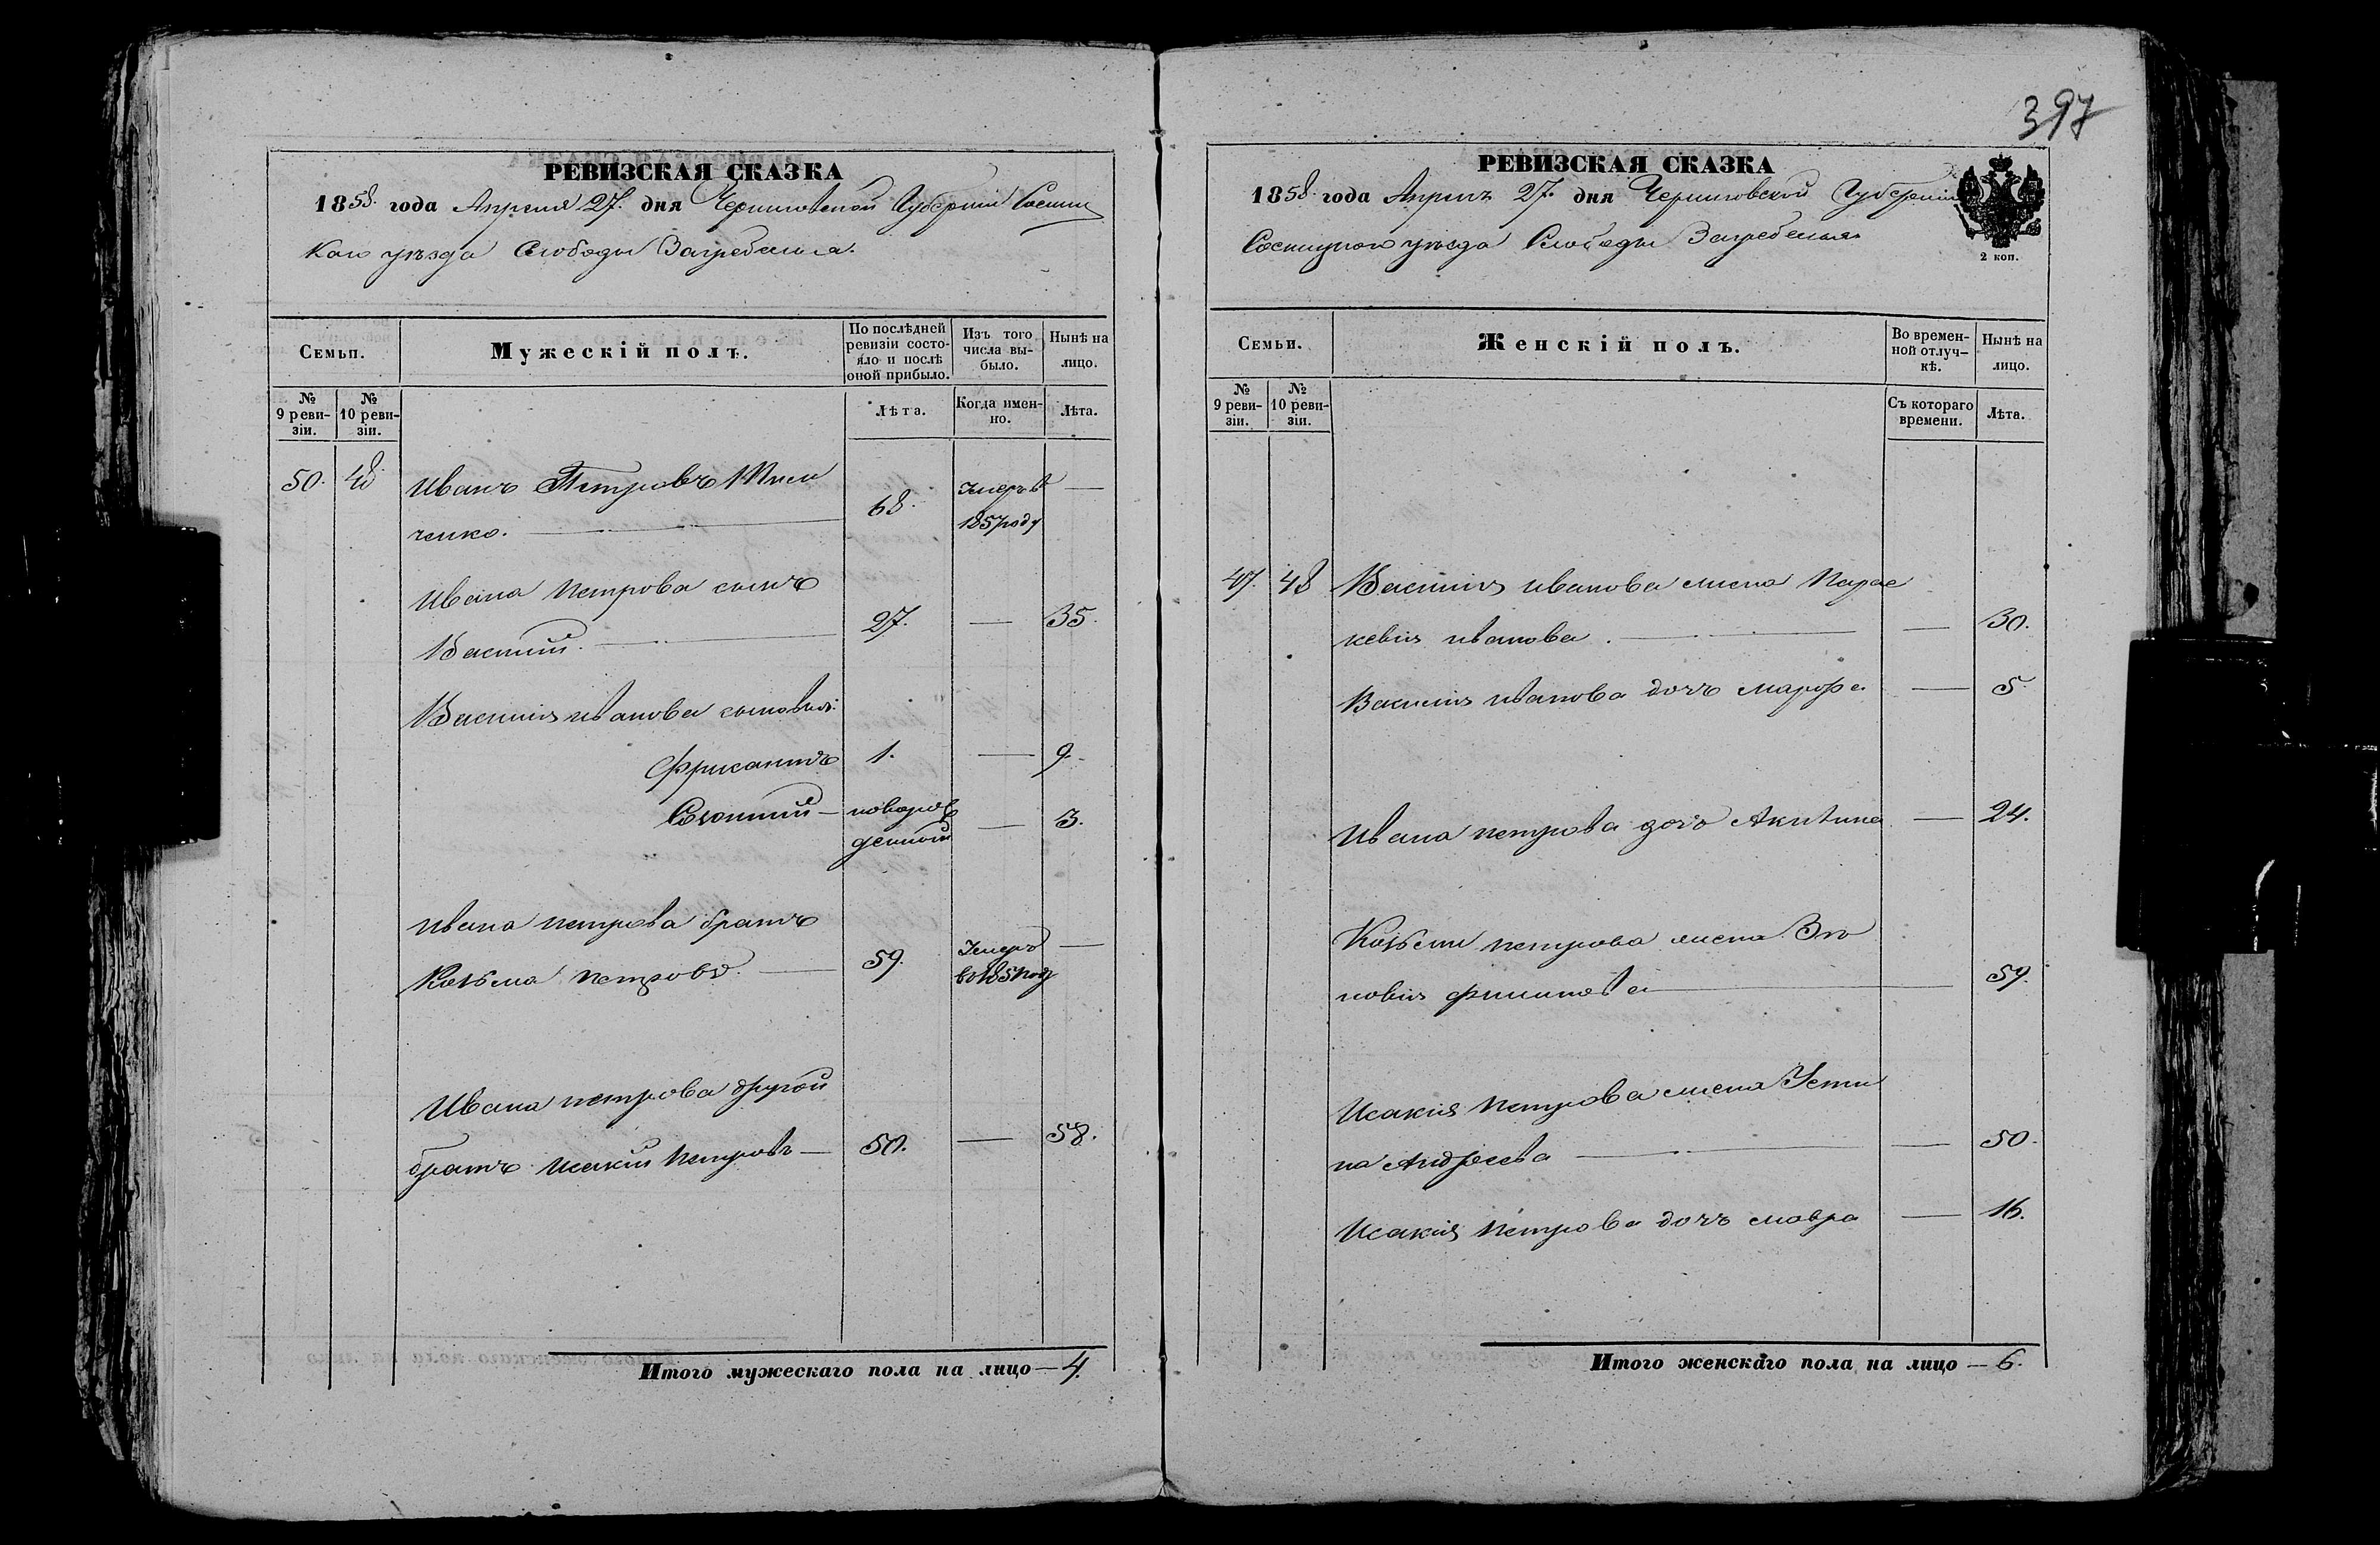 397
РЕВИЗСКАЯ СКАЗКА
1858 года Апреля 27. дня Черниговской Губернiи Сосниц
каго уѣзда Слободы Загребелья.
Семьи.
Мужескiй полъ.
По послѣдней ревизiи состояло и послѣ оной прибыло.
Изъ того числа выбыло.
Нынѣ на лицо.
№ 9 ревизiи.
№ 10 ревизiи.
Лѣта.
Когда именно.
Лѣта.
50. 48. Иванъ Петровъ
ченко. 68. Умеръ в 1857 году
Ивана Петрова сынъ
Василiй. 27. 35.
Василiя иванова сыновья:
1. 9.
новорожденной 3.
Ивана петрова братъ
Козьма петровъ. 59. Умеръ
Ивана петрова другой
братъ Исакiй Петровъ 50. 58.
Итого мужескаго пола на лицо 4.
РЕВИЗСКАЯ СКАЗКА
1858 года Апрель 27. дня Черниговской Губернiи
Сосницкого уѣзда Слободы Загребелья
2 коп.
Семьи.
Женскiй полъ.
Во временной отлучкѣ.
Нынѣ на лицо.
№ 9 ревизiи.
№ 10 ревизiи.
Съ котораго времени.
Лѣта.
47. 48 Василiя иванова жена Парас
кевiя иванова. 30.
Василiя иванова дочь марфа 5.
Ивана петрова дочь Акилина 24.
Козьмы петрова жена Зѣ
новiя филипова 59.
Исакiя Петрова жена Усти
на Андреева 50.
Исакiя Петрова дочь мавра 16.
Итого женскаго пола на лицо 6.